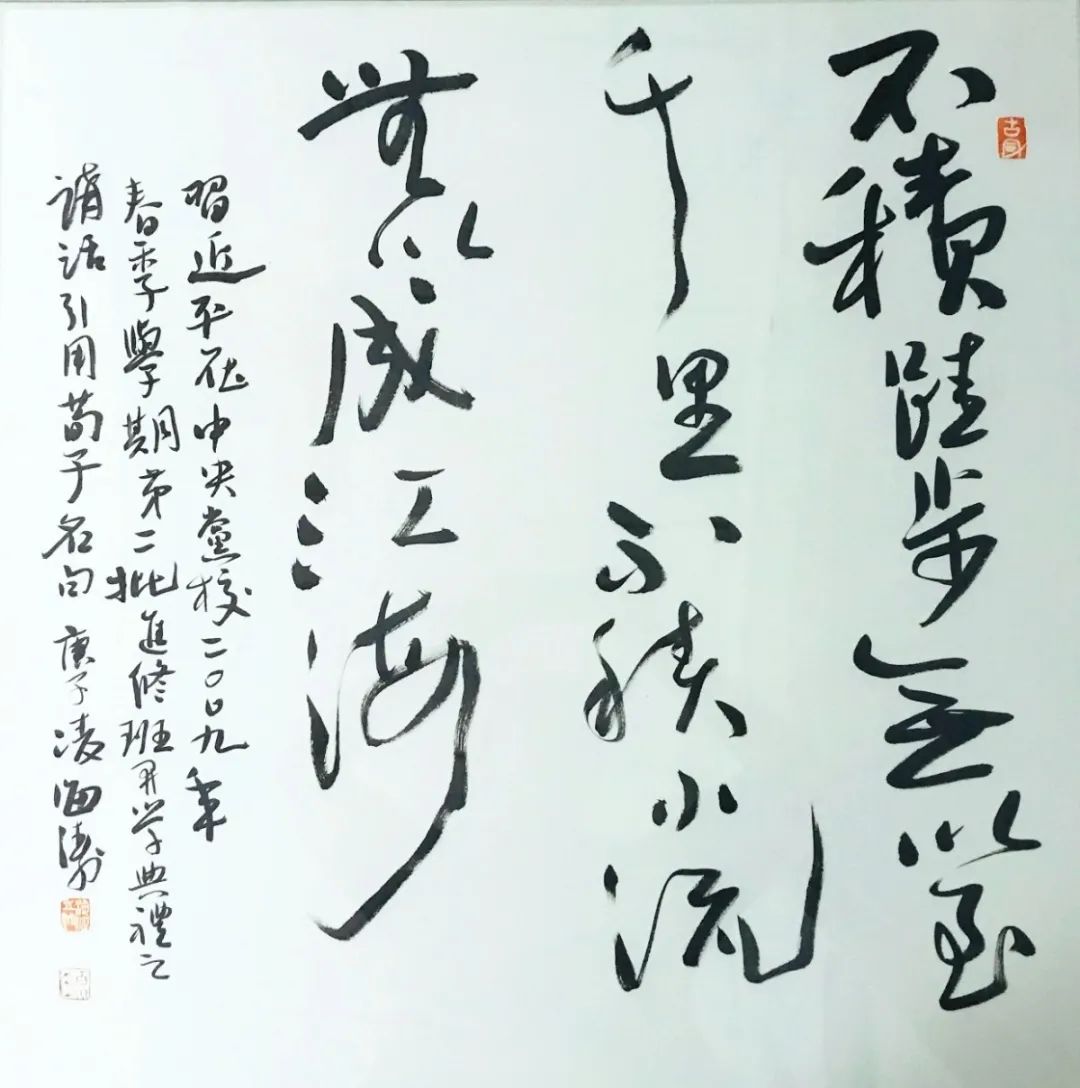 不積跬步無以至
千里不積小流
無以成江海
習近平在中央黨校二〇〇九年
春季學期第二批進修班開学典禮之
講话引用荀子名句 庚子凌海涛